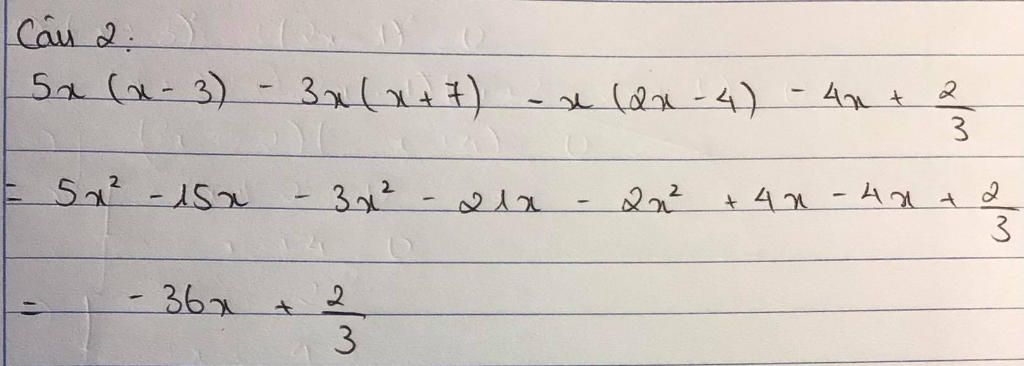 Câu 2:
5x (x - 3) - 3x (x + 7) - x (2x - 4) - 4x + 2/3
= 5x² - 15x - 3x² - 21x - 2x² + 4x - 4x + 2/3
= - 36x + 2/3